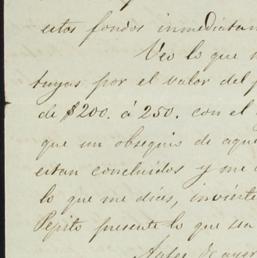 estos fondos inmediatam
Veo lo que m
tuyas por el valor del p
de $200. á 250. con el
que un obsequio de aque
estan concluidos y me
lo que me dices, inviérte
Pepito presente lo que un
Antes de ayer